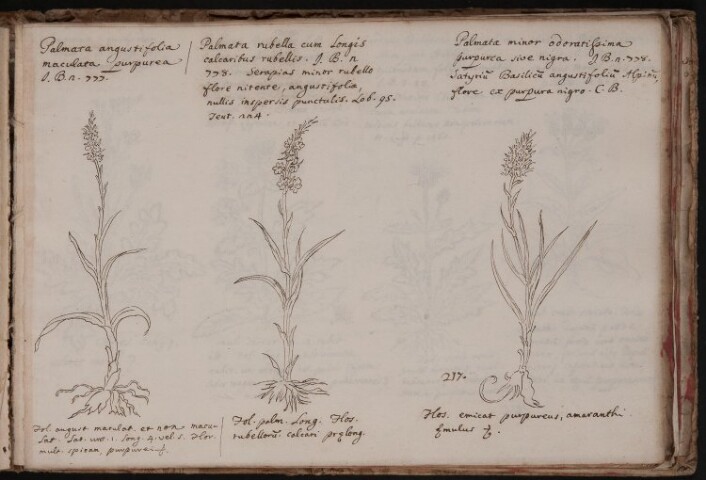 Palmata angustifolia
maculata purpurea
J. B. n. 777.
Palmata rubella cum Longis
calcaribus rubellis. J. B. n
778. Serapias minor rubello
flore nitente, angustifolia,
nullis inspersis punctulis. Lob. 95.
Icut. 224.
Palmata minor odoratissima
purpurea sive nigra. J B. n. 778.
Satyriū Basilicū angustifoliū Alpinū,
flore ex purpura nigro. C. B.
Fol. angust maculat. et non macu-
lat. lat. unc. 1. Long. 4. vel 5. Flor.
mult. spicam, purpurea
Fol. palm. Long. Flos.
rubellorū calcari prælong.
217.
Flos. emicat purpureus, amaranthi
æmulus